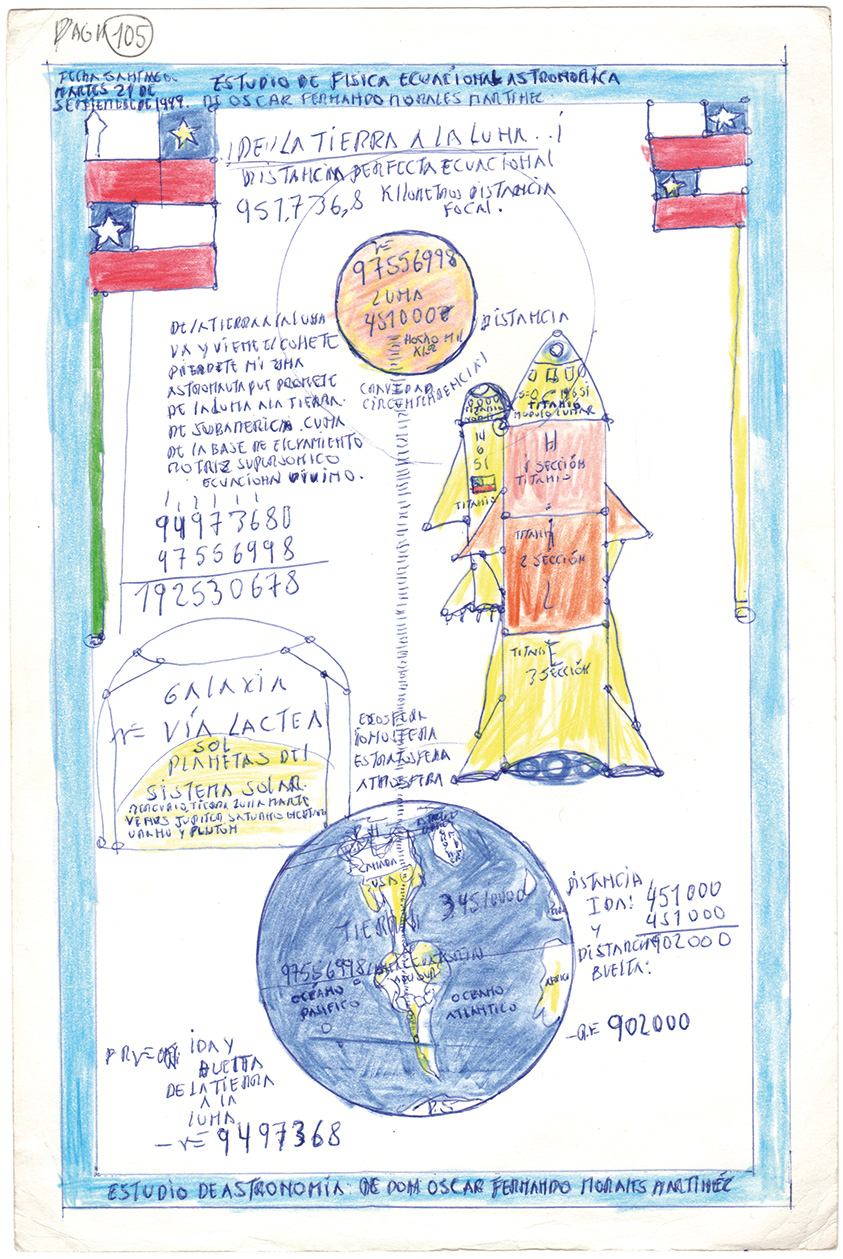 PAGN 105
FECHA SANTIAGO.
MARTES 21 DE
SEPTIEMBRE DE 1999.
ESTUDIO DE FISICA ECUACIONAL ASTRONOMICA
DE OSCAR FERNANDO MORALES MARTINEC
¡DE LA TIERRA A LA LUNA..!
DISTANCIA PERFECTA ECUACIONAL
951,736,8 KILOMETROS DISTANCIA
FOCAL.
97556998
LUNA
451000
DISTANCIA
CAVIDAD
CIRCUNFERENCIA!
DE LA TIERRA A LA LUNA
VA Y VIENE EL COHETE
ASTRONAUTA QUE PROMETE
DE LA LUNA A LA TIERRA.
DE SUDAMERICA CUNA
DE LA BASE DE
MOTRIZ SUPERSONICO
ECUACIONAL DIVINO.
1 1 2 1 1 1
94973680
97556998
192530678
TITANIO
MODULO LUNAR
14
6
51
TITANIO
H
1 SECCIÓN
TITANIO
TITANIO
2 SECCIÓN
3 SECCIÓN
GALAXIA
VÍA LACTEA
SOL
PLANETAS DEL
SISTEMA SOLAR.
MERCURIO, TIERRA LUNA MARTE
VENUS JUPITER SATURNO
URANO Y PLUTON
EXOSFERA
IONOSFERA
ESTRATOSFERA
ATMOSFERA
CANADA
USA
TIERRA
3451000
97556998
OCÉANO
PASIFICO
OCÉANO
ATLÁNTICO
AFRICA
P.S.
DISTANCIA
IDA: 451000
Y 451000
DISTANCIA 902000
BUELTA:
902000
IDA Y
BUELTA
DE LA TIERRA
A LA
LUNA
9497368
ESTUDIO DE ASTRONOMÍA: DE DON OSCAR FERNANDO MORALES MARTINÉC